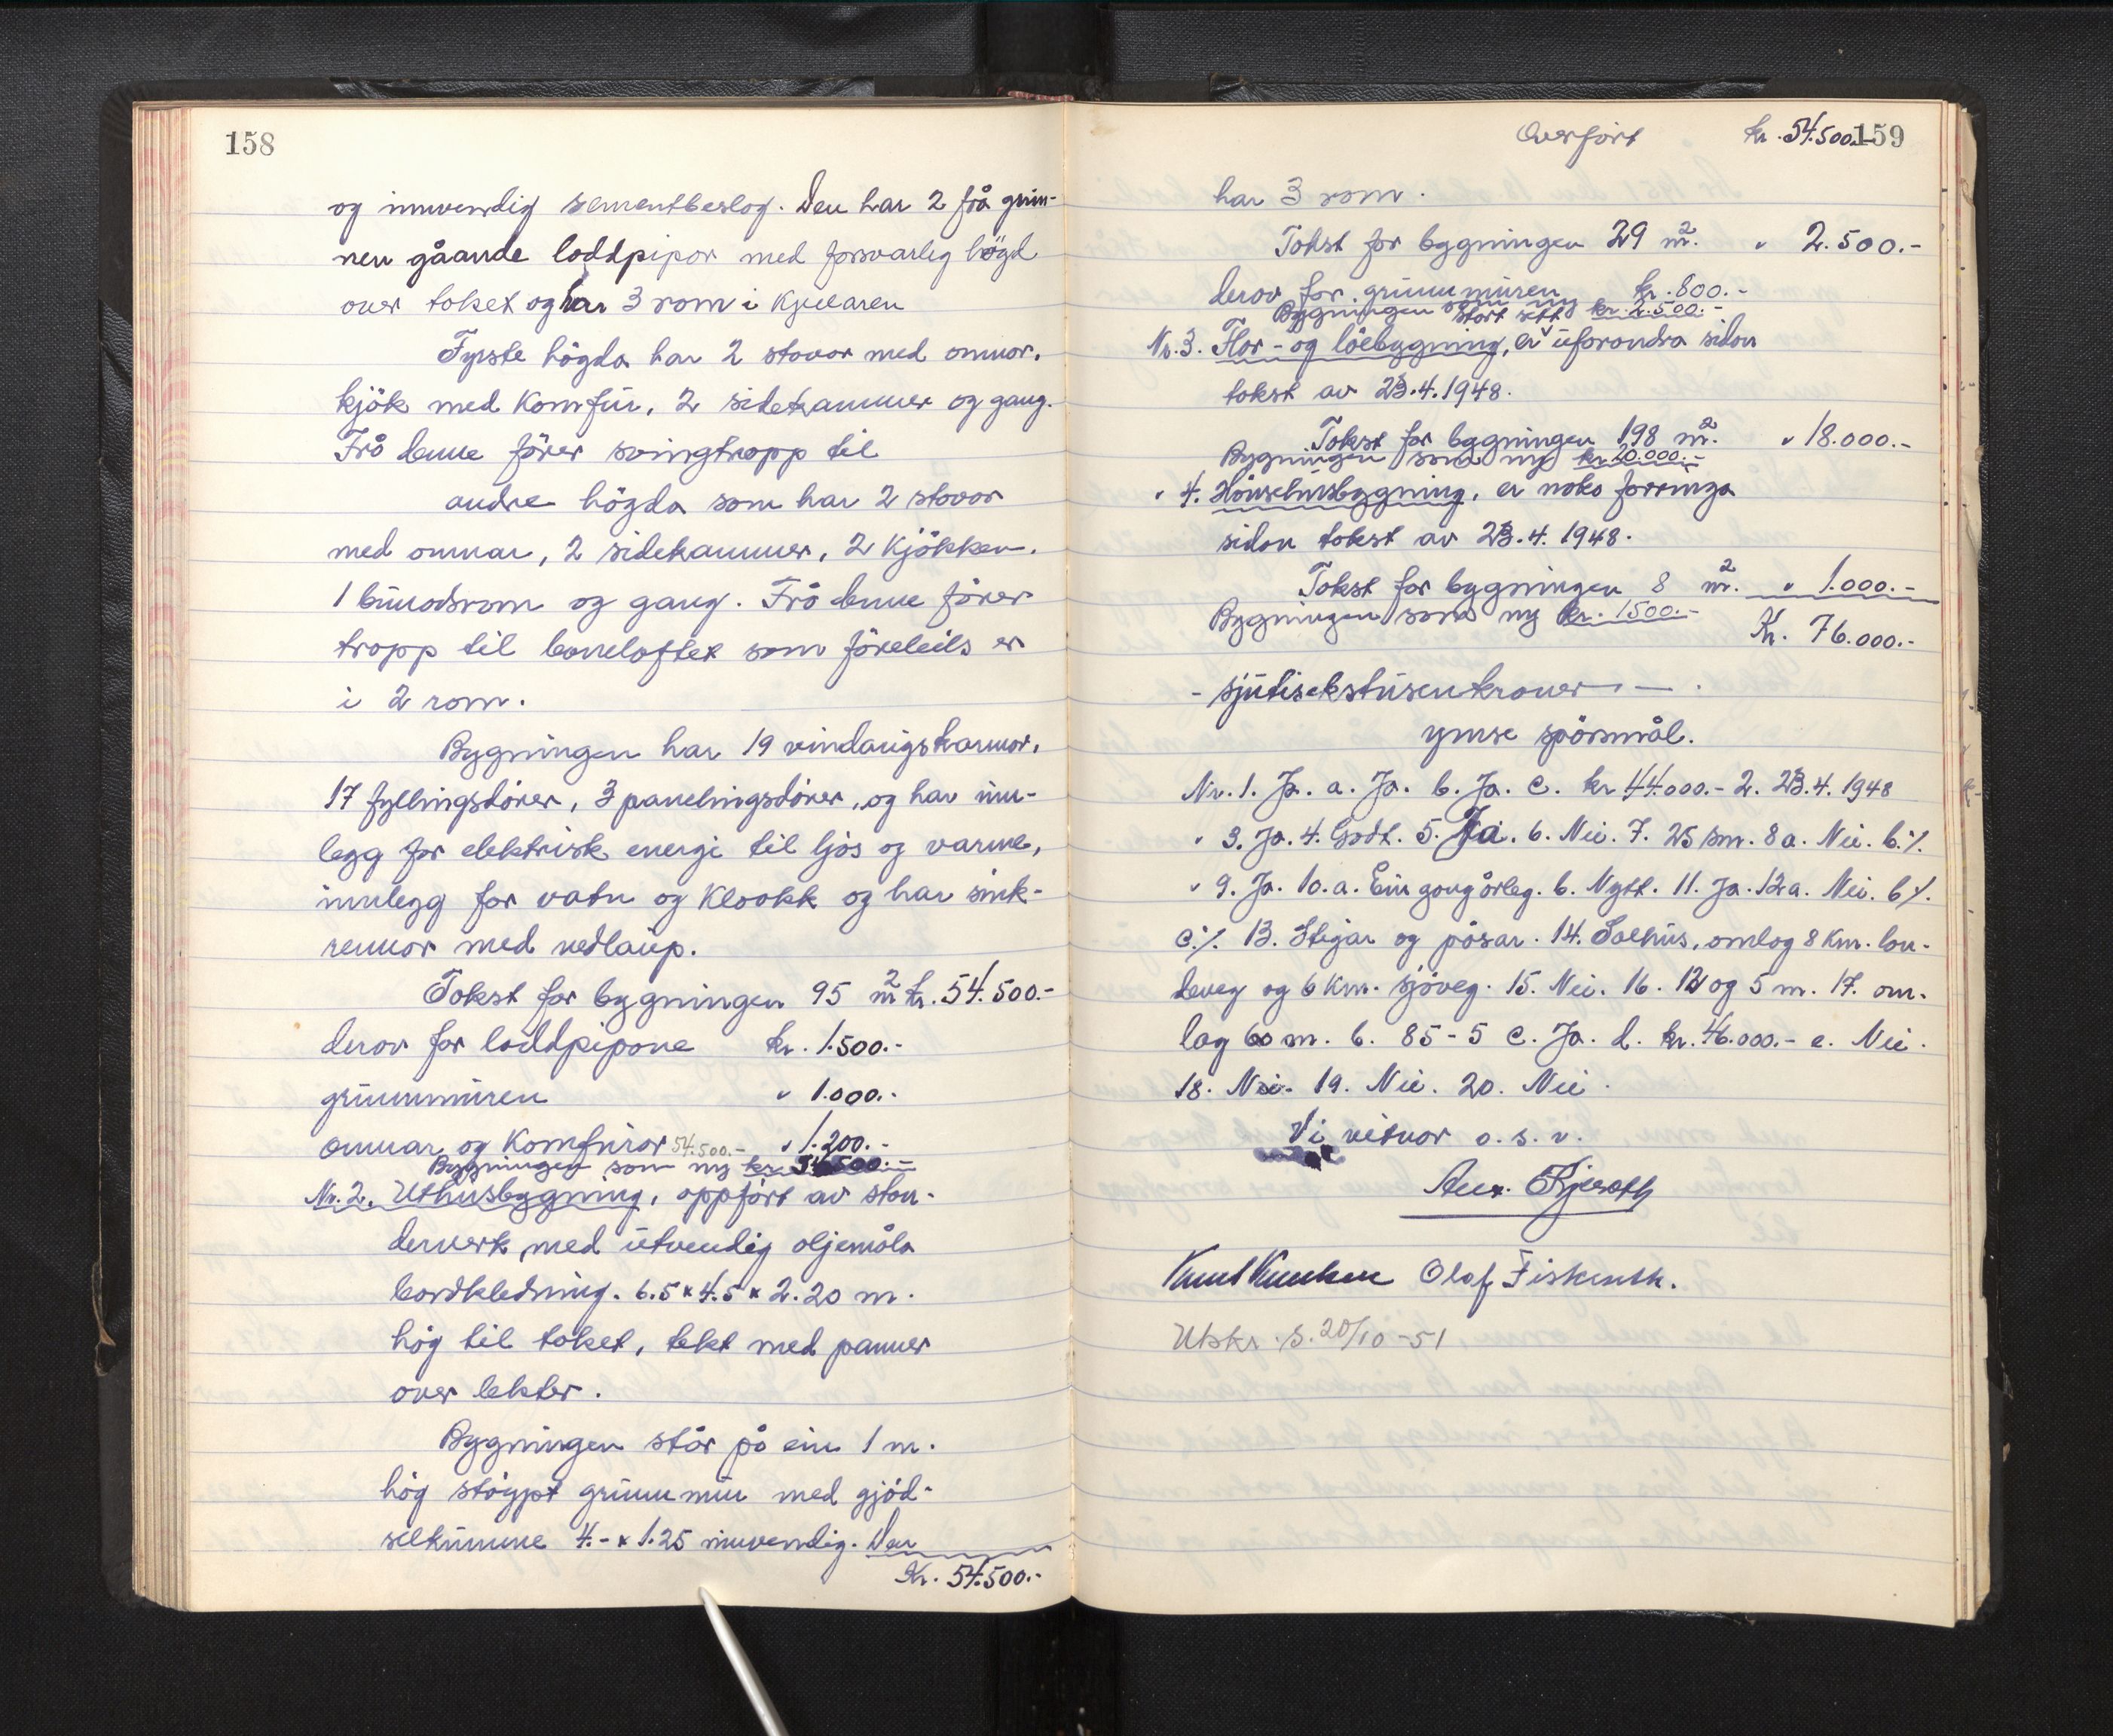 158
og innvendig sementbeslag. Den har 2 frå grun-
nen gåande loddpipor med forsvarleg högd
over taket og har 3 rom i kjellaren
Fyrste högda har 2 stovor med omnar,
kjök med komfur, 2 sidekammer og gang.
Frå denne förer svingtropp til
andre högda som har 2 stovor
med omnar, 2 sidekammer, 2 kjökken,
1 bunadsrom og gang. Frå denne förer
tropp til boveloftet som föreleils er
i 2 rom.
Bygningen har 19 vindaugskarmar,
17 fyllingsdörer, 3 panelingsdörer, og har inn-
legg for elektrisk energi til ljos og varme,
innlegg for vatn og kloakk og har sink-
rennor med nedlaup.
Takst for bygningen 95 m² kr. 54.500.-
derav for loddpipone kr. 1.500.-
grunnmuren " 1.000.-
omnar og komfurar 54.500.- " 1.200.-
Bygningen som ny kr. 500.-
Nr. 2. Uthusbygning, oppfört av stan-
derverk med utvendig oljemåla
bordkledning. 6.5 x 4.5 x 2.20 m.
hög til taket, tekt med panner
over lekter.
Bygningen står på ein 1 m.
hög stöypt grunnmur med gjöd-
selkumme 4.- x 1.25 innvendig. Den
Kr. 54.500.-
Overfört kr. 54.500.- 159
har 3 rom.
Takst for bygningen 29 m². " 2.500.-
derav for grunnmuren kr. 800.-
Bygningen som ny kr. 2.500.-
stort sett
Nr. 3. Flor- og löebygning, er uforandra sidan
takst av 23.4.1948.
Takst for bygningen 198 m². " 18.000.-
Bygningen som ny kr. 20.000.-
" 4. Hönsehusbygning, er noko forringa
sidan takst av 23.4.1948.
Takst for bygningen 8 m². " 1.000.-
Bygningen som ny kr. 1500.-
Kr. 76.000.-
- sjutisekstusenkroner - - .
ymse spörsmål.
Nr. 1. Ja. a. Ja. b. Ja. c. kr 44.000.- 2. 23.4.1948
" 3. Ja. 4. Godt. 5. Ja. 6. Nei. 7. 25 sm. 8a. Nei. b. ·/.
" 9. Ja. 10.a. Ein gong årleg. b. Nytt. 11. Ja. 12a. Nei. b ·/.
c. ·/. 13. Stigar og pösar. 14. Salhus, omlag 8 km. lan-
deveg og 6 km. sjöveg. 15. Nei. 16. 12 og 5 m. 17. om-
lag 60 m. b. 85-5 c. Ja. d. kr. 46.000.- e. Nei.
18. Nei. 19. Nei. 20. Nei.
Vi vitnar o.s.v.
Knut Knutsen Olaf Fisketh.
Utskr. s. 20/10-51